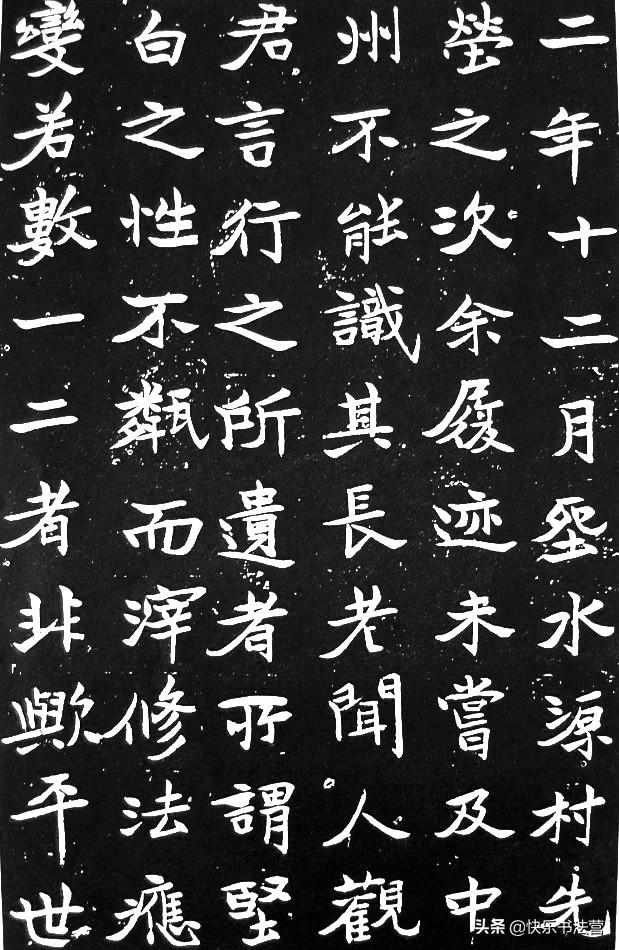 二年十二月水源村先
塋之次余履迹未嘗及中
州不能識其長老聞人觀
君言行之所遺者所謂堅
白之性不甐而滓修法應
變若數一二者非歟平世
头条 @快乐书法营